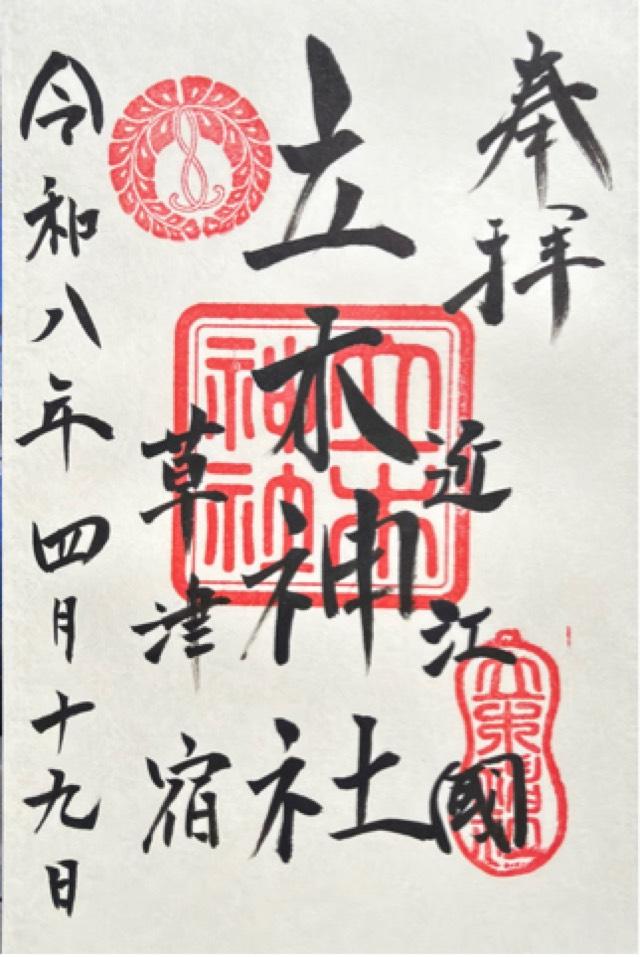 奉拝
近江國
立木神社
草津宿
令和八年四月十九日
立木神社
立木神社